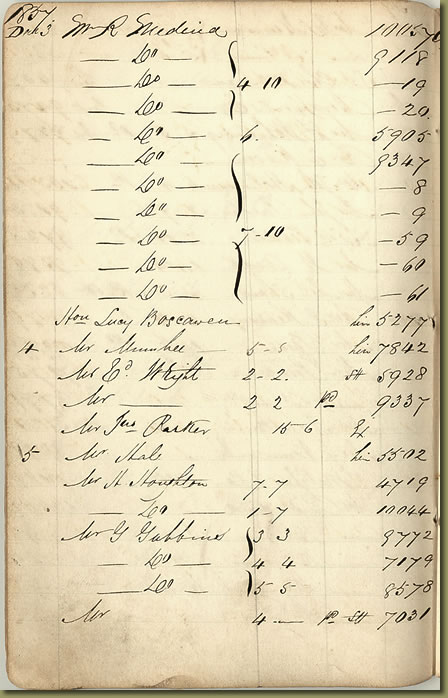 1857
Decr 3 Mr R Medina 10057
— Do — 9118
— Do — 4 10 — 19
— Do — — 20
— Do — 6. 5905
— Do — 9347
— Do — — 8
— Do — — 9
— Do — 7-10 — 59
— Do — — 60
— Do — — 61
Hon Lucy Boscawen 5277
4 Mr 5-5 7842
Mr Ed. Wright 2-2. 5928
Mr — 2 2 Pd 9337
Mr Jno Parker 15 6
5 Mr Hale 5502
Mr H Houghton 7-7 4719
— Do — 1-7 10044
Mr G Gubbins 3 3 9772
— Do — 4 4 7179
— Do — 5 5 8578
Mr 4 — Pd 7031